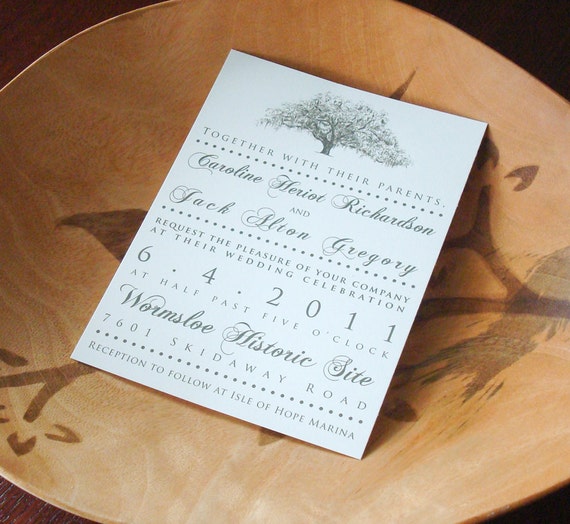 Together with their parents,
Caroline Heriot Richardson
and
Jack Alton Gregory
request the pleasure of your company
at their wedding celebration
6 · 4 · 2011
at half past five o'clock
Wormsloe Historic Site
7601 Skidaway Road
Reception to follow at Isle of Hope Marina